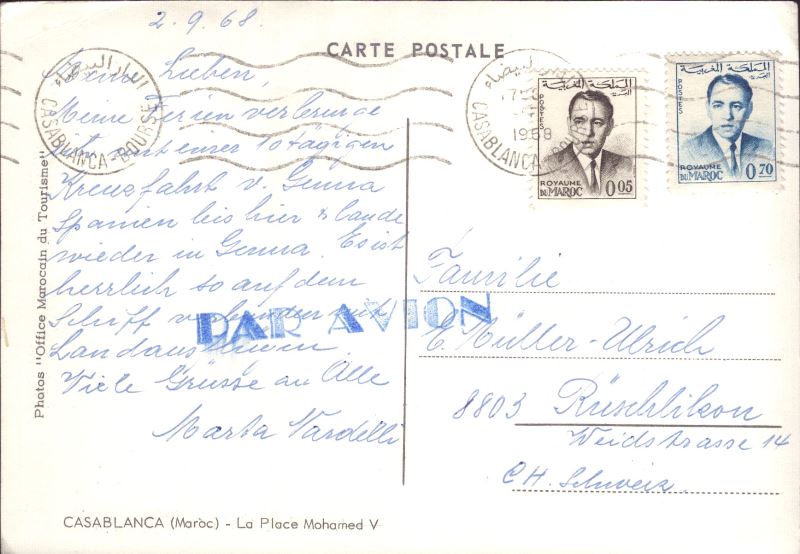 2.9.68.
CARTE POSTALE
Meine Lieben,
Meine Ferien verbringe
ich mit einer 10 tägigen
Kreuzfahrt v. Genua
Spanien bis hier & lande
wieder in Genua. Es ist
herrlich so auf dem
Schiff verbunden mit
Landausflügen
Viele Grüsse an Alle
Marta Vardelli
PAR AVION
Familie
E. Müller-Ulrich
8803 Rüschlikon
Weidstrasse 14
CH. Schweiz.
الدار البيضاء
CASABLANCA-BOURSE
الدار البيضاء
1968
CASABLANCA
المملكة المغربية
POSTES
ROYAUME
DU MAROC
0.05
المملكة المغربية
POSTES
ROYAUME
DU MAROC
0.70
Photos "Office Marocain du Tourisme"
CASABLANCA (Maroc) - La Place Mohamed V